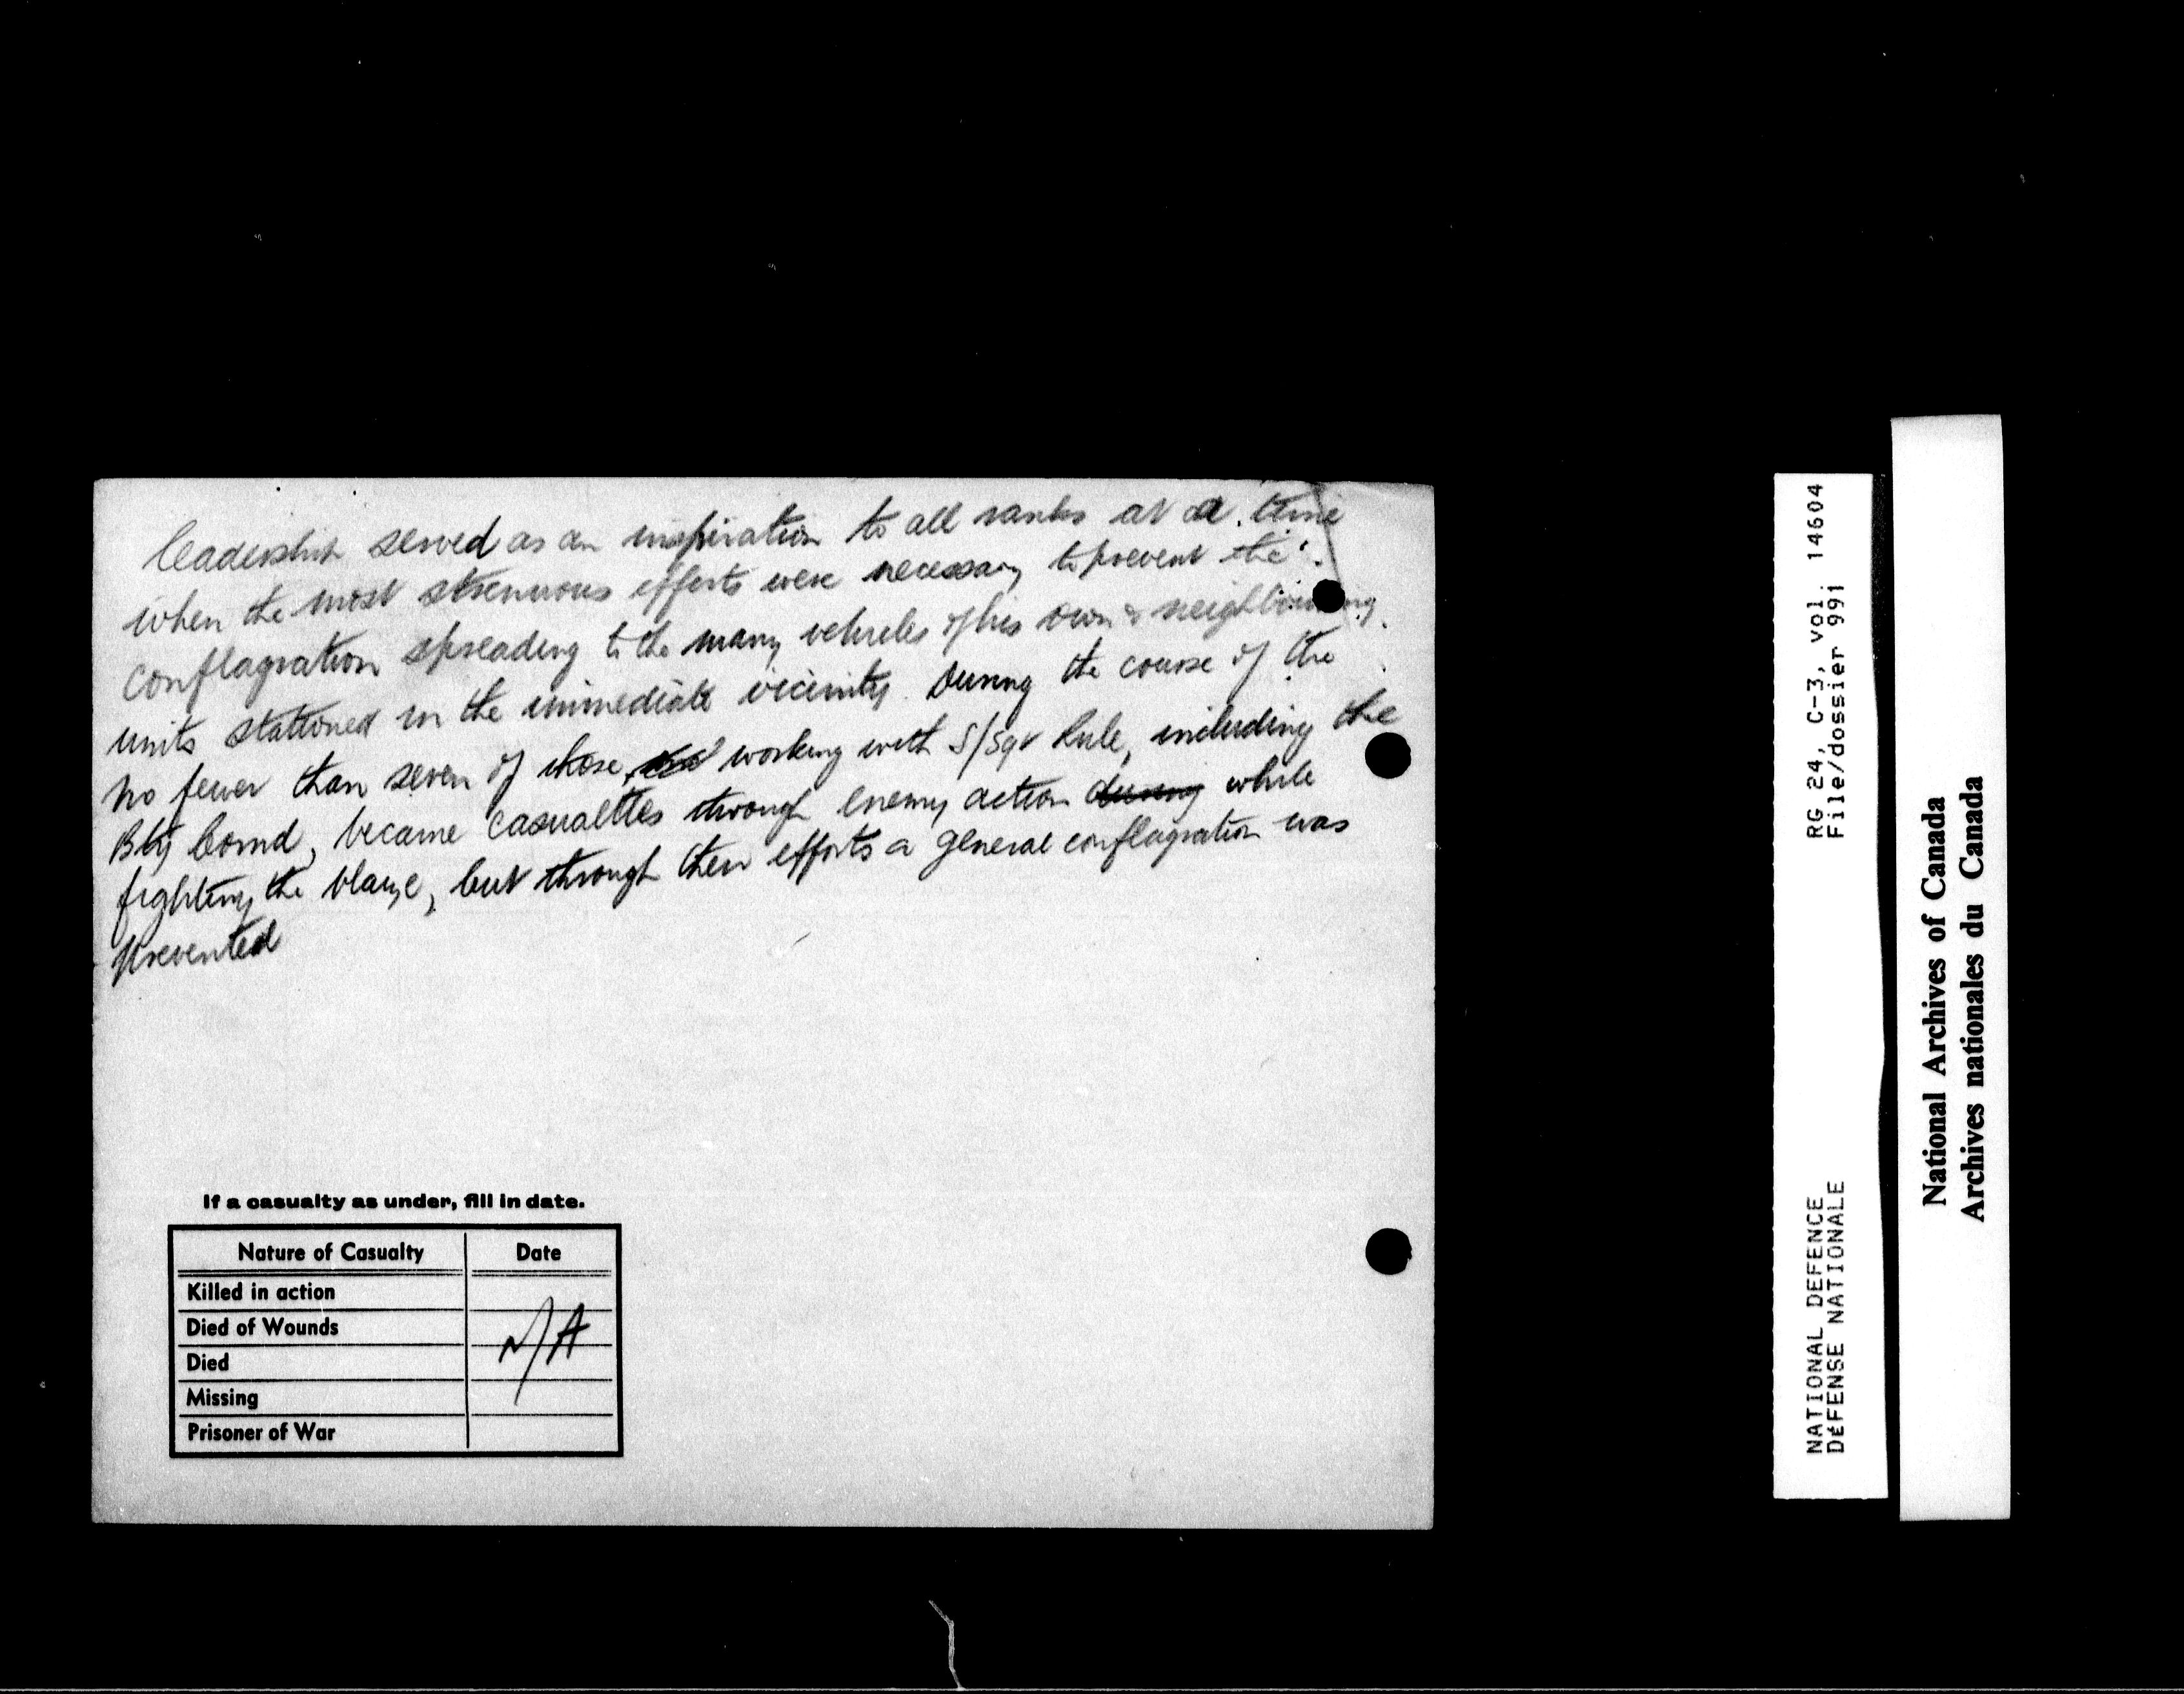 leadership served as an inspiration to all ranks at a time
when the most strenuous efforts were necessary to prevent the
conflagration spreading to the many vehicles of his own & neighbouring
units stationed in the immediate vicinity. During the course of the
no fewer than seven of those working with S/Sgt Rule, including the
Bty Comd, became casualties through enemy action during while
fighting the blaze, but through their efforts a general conflagration was
prevented
If a casualty as under, fill in date.
Nature of Casualty Date
Killed in action
Died of Wounds
Died
Missing
Prisoner of War
N/A
NATIONAL DEFENCE RG 24, C-3, vol. 14604
DÉFENSE NATIONALE File/dossier 991
National Archives of Canada
Archives nationales du Canada